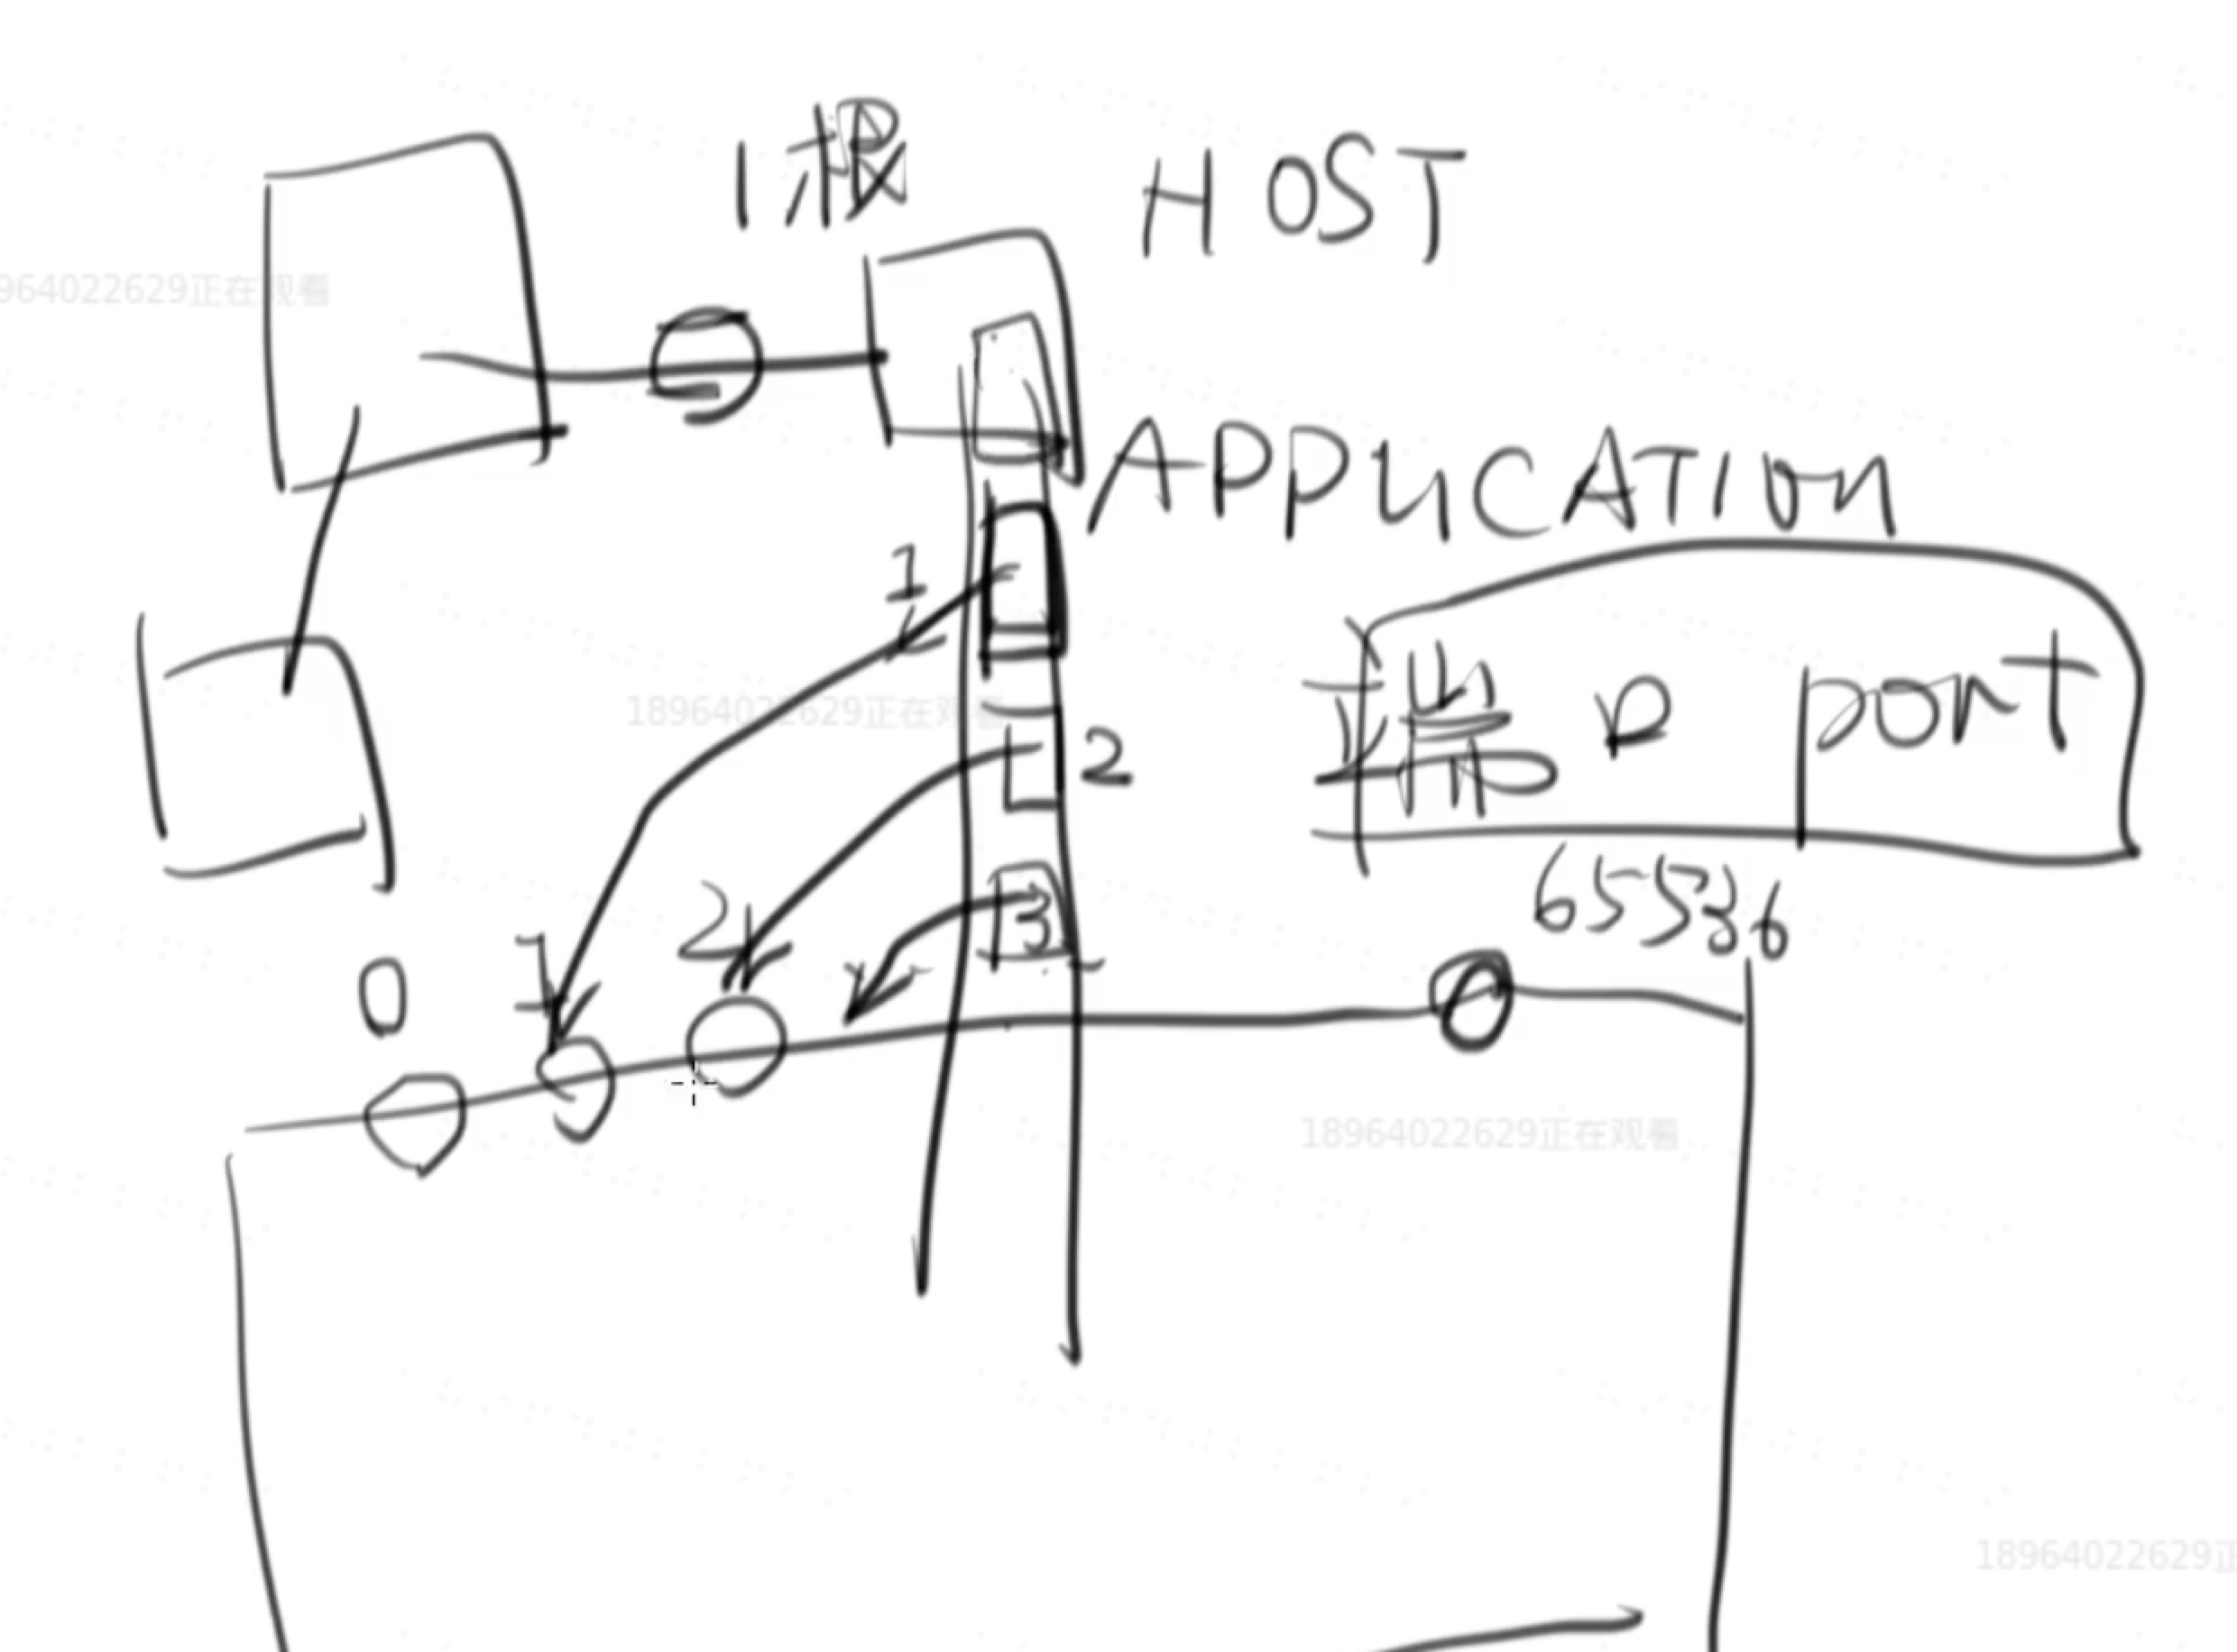 1根
HOST
18964022629正在观看
APPLICATION
1
端口 port
18964022629正在观看
2
65536
3
2
1
0
18964022629正在观看
18964022629正